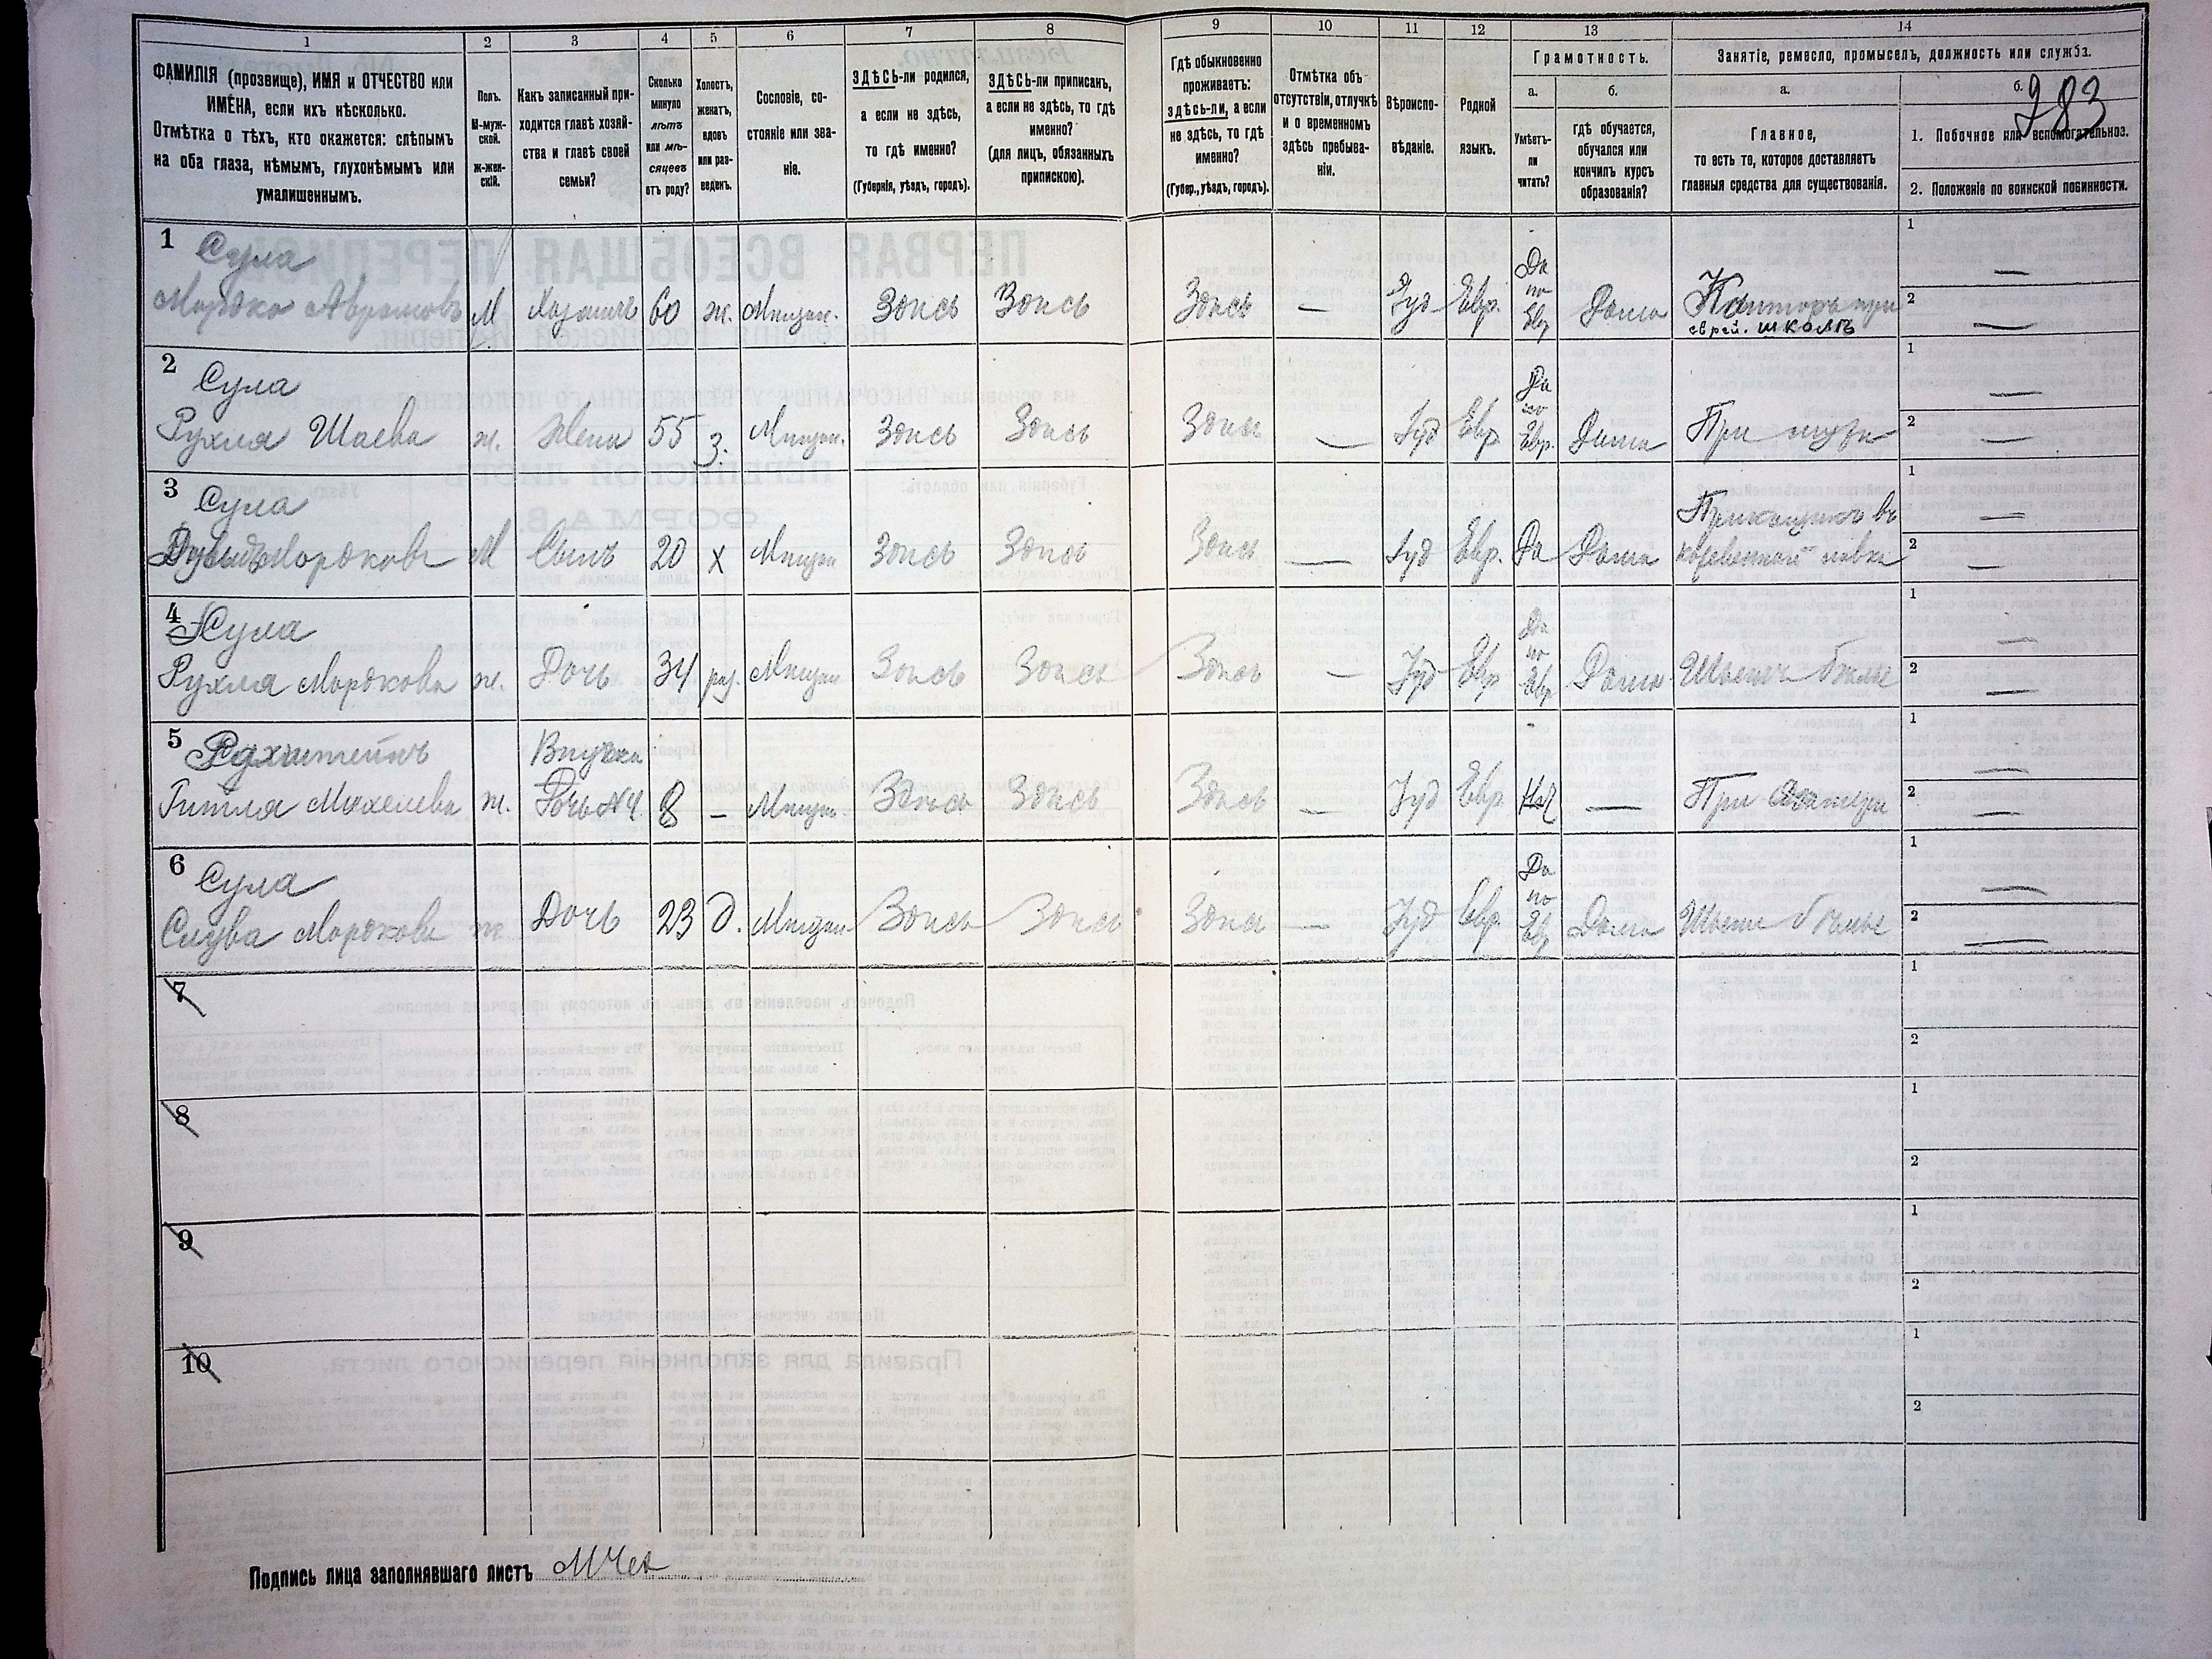 1 2 3 4 5 6 7 8 9 10 11 12 13 14
ФАМИЛІЯ (прозвище), ИМЯ и ОТЧЕСТВО или
ИМЕНА, если ихъ нѣсколько.
Отмѣтка о тѣхъ, кто окажется: слѣпымъ
на оба глаза, нѣмымъ, глухонѣмымъ или
умалишеннымъ.
Полъ.
М-муж-
ской.
ж-жен-
скій.
Какъ записанный при-
ходится главѣ хозяй-
ства и главѣ своей
семьи?
Сколько
минуло
лѣтъ
или мѣ-
сяцевъ
отъ роду?
Холостъ,
женатъ,
вдовъ
или раз-
веденъ.
Сословіе, со-
стояніе или зва-
ніе.
ЗДѢСЬ-ли родился,
а если не здѣсь,
то гдѣ именно?
(Губернія, уѣздъ, городъ).
ЗДѢСЬ-ли приписанъ,
а если не здѣсь, то гдѣ
именно?
(для лицъ, обязанныхъ
припискою).
Гдѣ обыкновенно
проживаетъ:
здѣсь-ли, а если
не здѣсь, то гдѣ
именно?
(Губер., уѣздъ, городъ).
Отмѣтка объ
отсутствіи, отлучкѣ
и о временномъ
здѣсь пребыва-
ніи.
Вѣроиспо-
вѣданіе.
Родной
языкъ.
Грамотность.
а.
Умѣетъ-
ли
читать?
б.
гдѣ обучается,
обучался или
кончилъ курсъ
образованія?
Занятіе, ремесло, промыселъ, должность или служба.
а.
Главное,
то есть то, которое доставляетъ
главныя средства для существованія.
б.
283
1. Побочное или вспомогательное.
2. Положеніе по воинской повинности.
1 Сула
Мордко Абрамовъ М Хозяинъ 60 ж. Мещан. Здѣсь Здѣсь Здѣсь — Іуд Евр. Да по Евр Дома Канторъ при
еврей. школѣ
1 —
2 —
2 Сула
Рухля Шаева ж. Жена 55 З. Мещан. Здѣсь Здѣсь Здѣсь — Іуд Евр Да по Евр. Дома При мужѣ
1 —
2 —
3 Сула
Мордковъ М Сынъ 20 х Мещан Здѣсь Здѣсь Здѣсь — Іуд Евр. Да Дома Прикащикъ въ
кожевенной лавке
1 —
2 —
4 Сула
Рухля Мордкова ж. Дочь 34 раз. Мещан Здѣсь Здѣсь Здѣсь — Іуд Евр Да по Евр Дома Шьетъ бѣлье
1 —
2 —
5 Внучка
Гитля Михелева ж. Дочь №4 8 — Мещан. Здѣсь Здѣсь Здѣсь — Іуд Евр Нѣт — При матери
1 —
2 —
6 Сула
Мордкова ж Дочь 23 д. Мещан Здѣсь Здѣсь Здѣсь — Іуд Евр. Да по Евр Дома Шьетъ бѣлье
1 —
2 —
7
1
2
8
1
2
9
1
2
10
1
2
Подпись лица заполнявшаго листъ